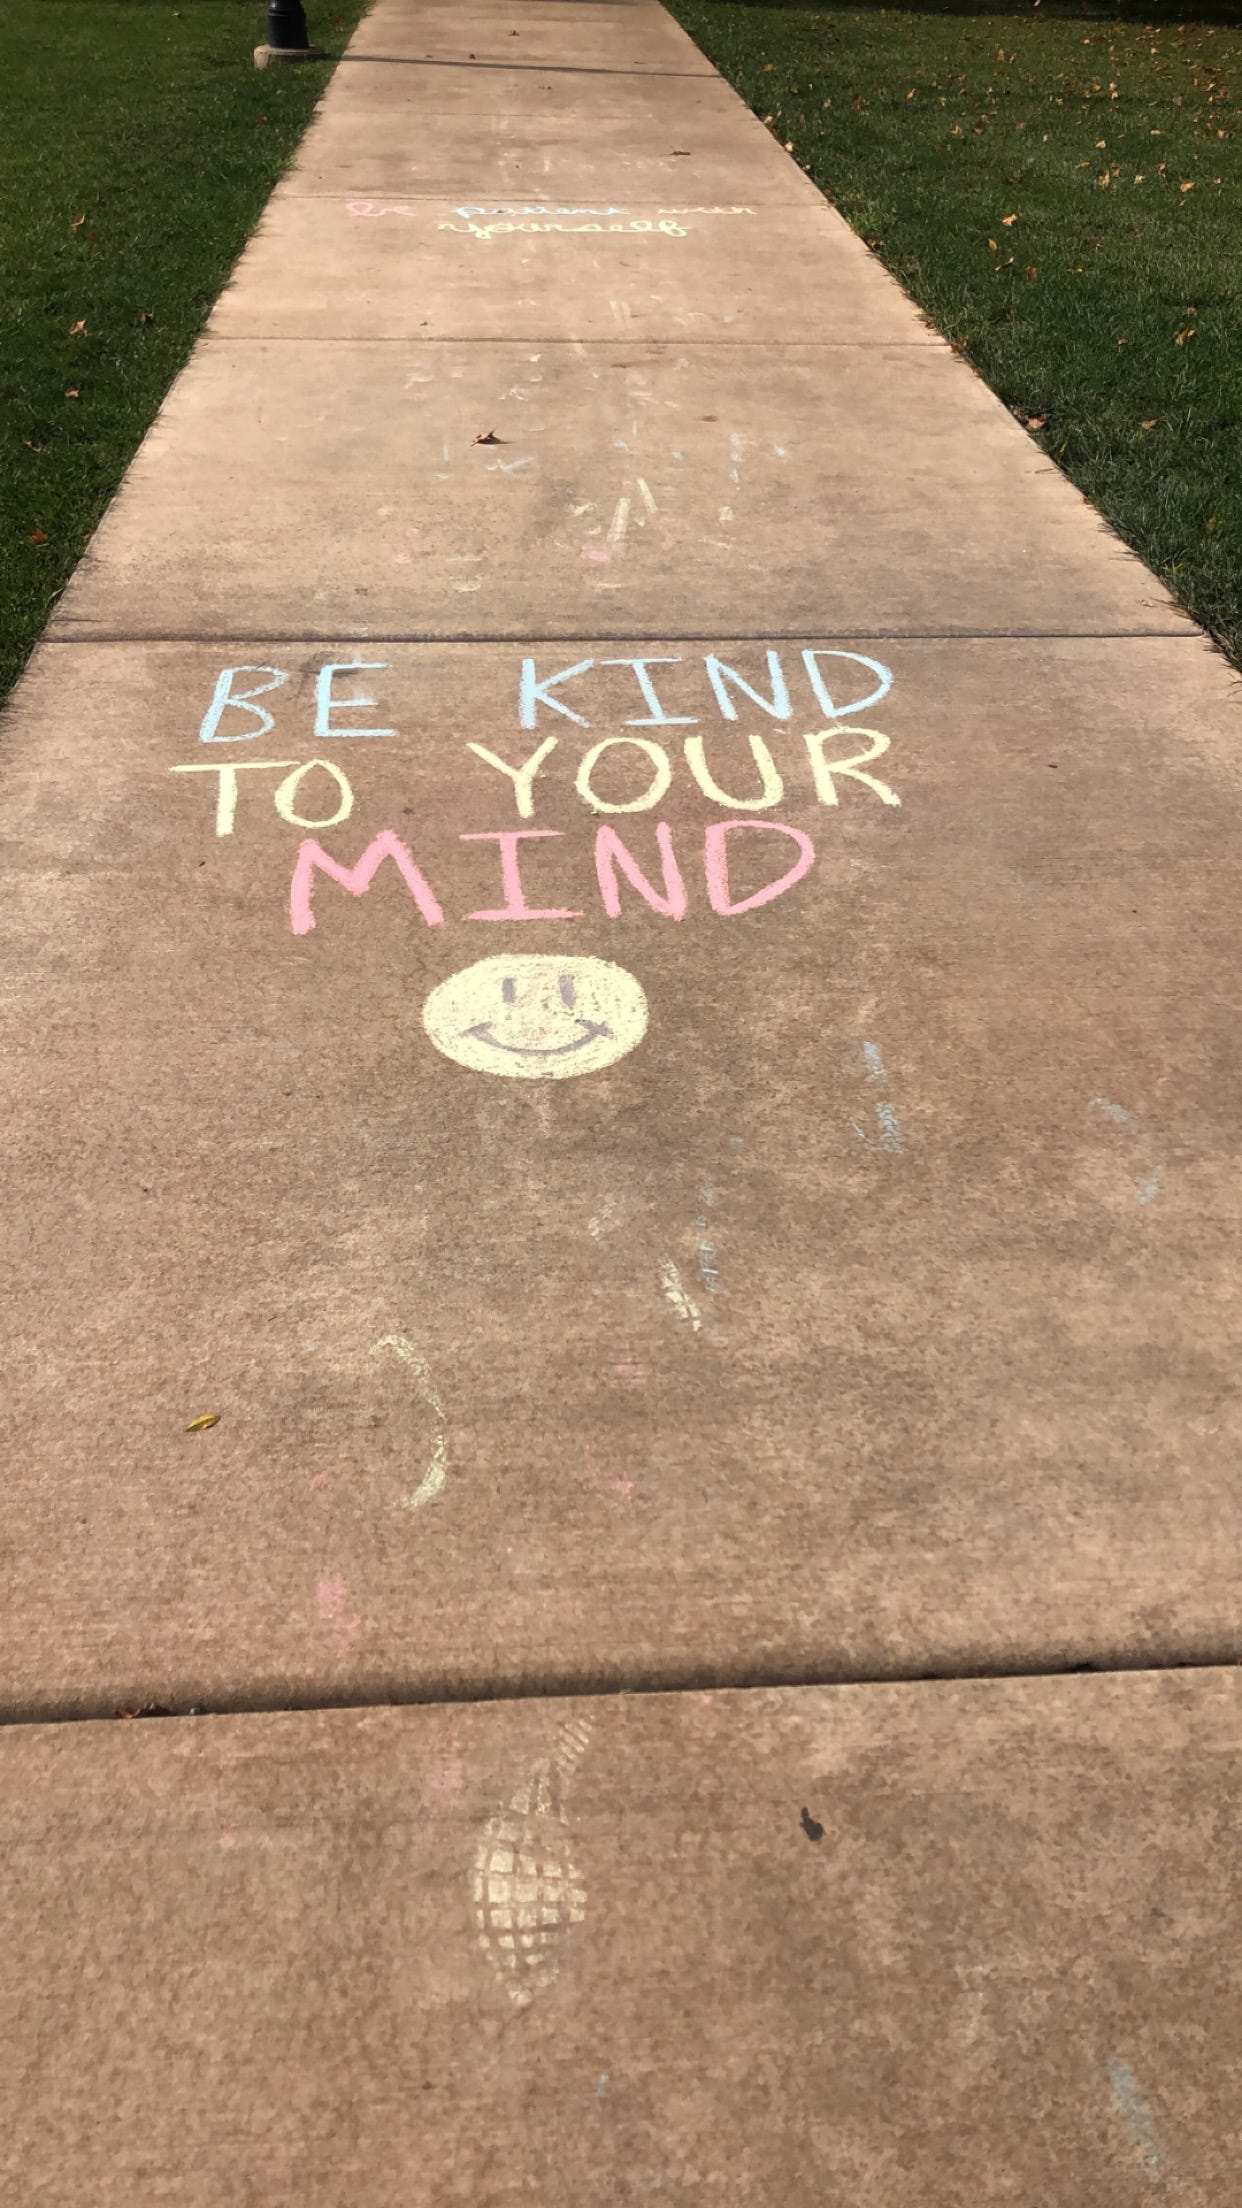 be patient with
yourself
BE KIND
TO YOUR
MIND